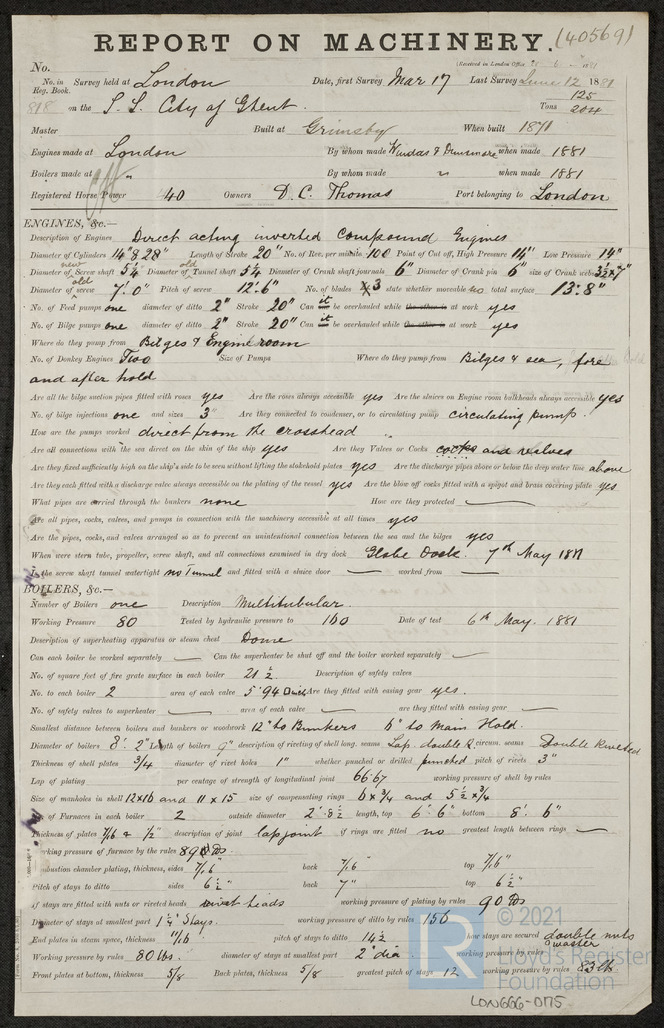 REPORT ON MACHINERY. (40569)
No. (Received in London Office
No. in Survey held at London Date, first Survey Mar 17 Last Survey June 12 1881
Reg. Book. 125
818 on the S.S. City of Ghent. Tons 204
Master Built at Grimsby When built 1871
Engines made at London By whom made when made 1881
Boilers made at " By whom made " when made 1881
Registered Horse Power 40 Owners D. C. Thomas Port belonging to London
ENGINES, &c.—
Description of Engines Direct acting inverted Compound Engines
Diameter of Cylinders 14" & 28" Length of Stroke 20" No. of Rev. per minute 100 Point of Cut off, High Pressure 14" Low Pressure 14"
new old
Diameter of Screw shaft 5¼ Diameter of Tunnel shaft 5¼ Diameter of Crank shaft journals 6" Diameter of Crank pin 6" size of Crank webs 3½ × 7"
old
Diameter of screw 7'. 0" Pitch of screw 12'. 6" No. of blades 3 state whether moveable no total surface 13'. 8"
No. of Feed pumps one diameter of ditto 2" Stroke 20" Can it be overhauled while the other is at work yes
No. of Bilge pumps one diameter of ditto 2" Stroke 20" Can it be overhauled while the other is at work yes
Where do they pump from Bilges & Engine room
No. of Donkey Engines Two Size of Pumps Where do they pump from Bilges & sea, fore
and after hold
Are all the bilge suction pipes fitted with roses yes Are the roses always accessible yes Are the sluices on Engine room bulkheads always accessible yes
No. of bilge injections one and sizes 3" Are they connected to condenser, or to circulating pump circulating pump.
How are the pumps worked direct from the crosshead
Are all connections with the sea direct on the skin of the ship yes Are they Valves or Cocks cocks and valves
Are they fixed sufficiently high on the ship's side to be seen without lifting the stokehold plates yes Are the discharge pipes above or below the deep water line above
Are they each fitted with a discharge valve always accessible on the plating of the vessel yes Are the blow off cocks fitted with a spigot and brass covering plate yes
What pipes are carried through the bunkers none How are they protected —
Are all pipes, cocks, valves, and pumps in connection with the machinery accessible at all times yes
Are the pipes, cocks, and valves arranged so as to prevent an unintentional connection between the sea and the bilges yes
When were stern tube, propeller, screw shaft, and all connections examined in dry dock Globe Dock. 7th May 1881
Is the screw shaft tunnel watertight no Tunnel and fitted with a sluice door — worked from —
BOILERS, &c.—
Number of Boilers one Description Multitubular.
Working Pressure 80 Tested by hydraulic pressure to 160 Date of test 6th May. 1881
Description of superheating apparatus or steam chest Dome
Can each boiler be worked separately — Can the superheater be shut off and the boiler worked separately —
No. of square feet of fire grate surface in each boiler 21½ Description of safety valves
No. to each boiler 2 area of each valve 5.94 Are they fitted with easing gear yes.
No. of safety valves to superheater — area of each valve — are they fitted with easing gear —
Smallest distance between boilers and bunkers or woodwork 12" to Bunkers 6" to Main Hold.
Diameter of boilers 8'. 2" Length of boilers 9" description of riveting of shell long. seams Lap. double R. circum. seams Double Riveted
Thickness of shell plates ¾ diameter of rivet holes 1" whether punched or drilled punched pitch of rivets 3"
Lap of plating per centage of strength of longitudinal joint 66.67 working pressure of shell by rules
Size of manholes in shell 12×16 and 11 × 15 size of compensating rings 6 × ¾ and 5½ × ¾
No. of Furnaces in each boiler 2 outside diameter 2'. 8½ length, top 6'. 6" bottom 8'. 6"
Thickness of plates 7/16 & ½" description of joint lap joint if rings are fitted no greatest length between rings —
working pressure of furnace by the rules
combustion chamber plating, thickness, sides 7/16" back 7/16" top 7/16"
Pitch of stays to ditto sides 6½" back 7" top 6½"
if stays are fitted with nuts or riveted heads rivet heads working pressure of plating by rules 90 lbs
Diameter of stays at smallest part 1¼" Stays. working pressure of ditto by rules 156
End plates in steam space, thickness 11/16 pitch of stays to ditto 14½ how stays are secured double nuts
& washer
Working pressure by rules 80 lbs. diameter of stays at smallest part 2" dia working pressure by rules
Front plates at bottom, thickness 5/8 Back plates, thickness 5/8 greatest pitch of stays 12 working pressure by rules 83 lb
© 2021
LR
Lloyd's Register
Foundation
LON666-0175